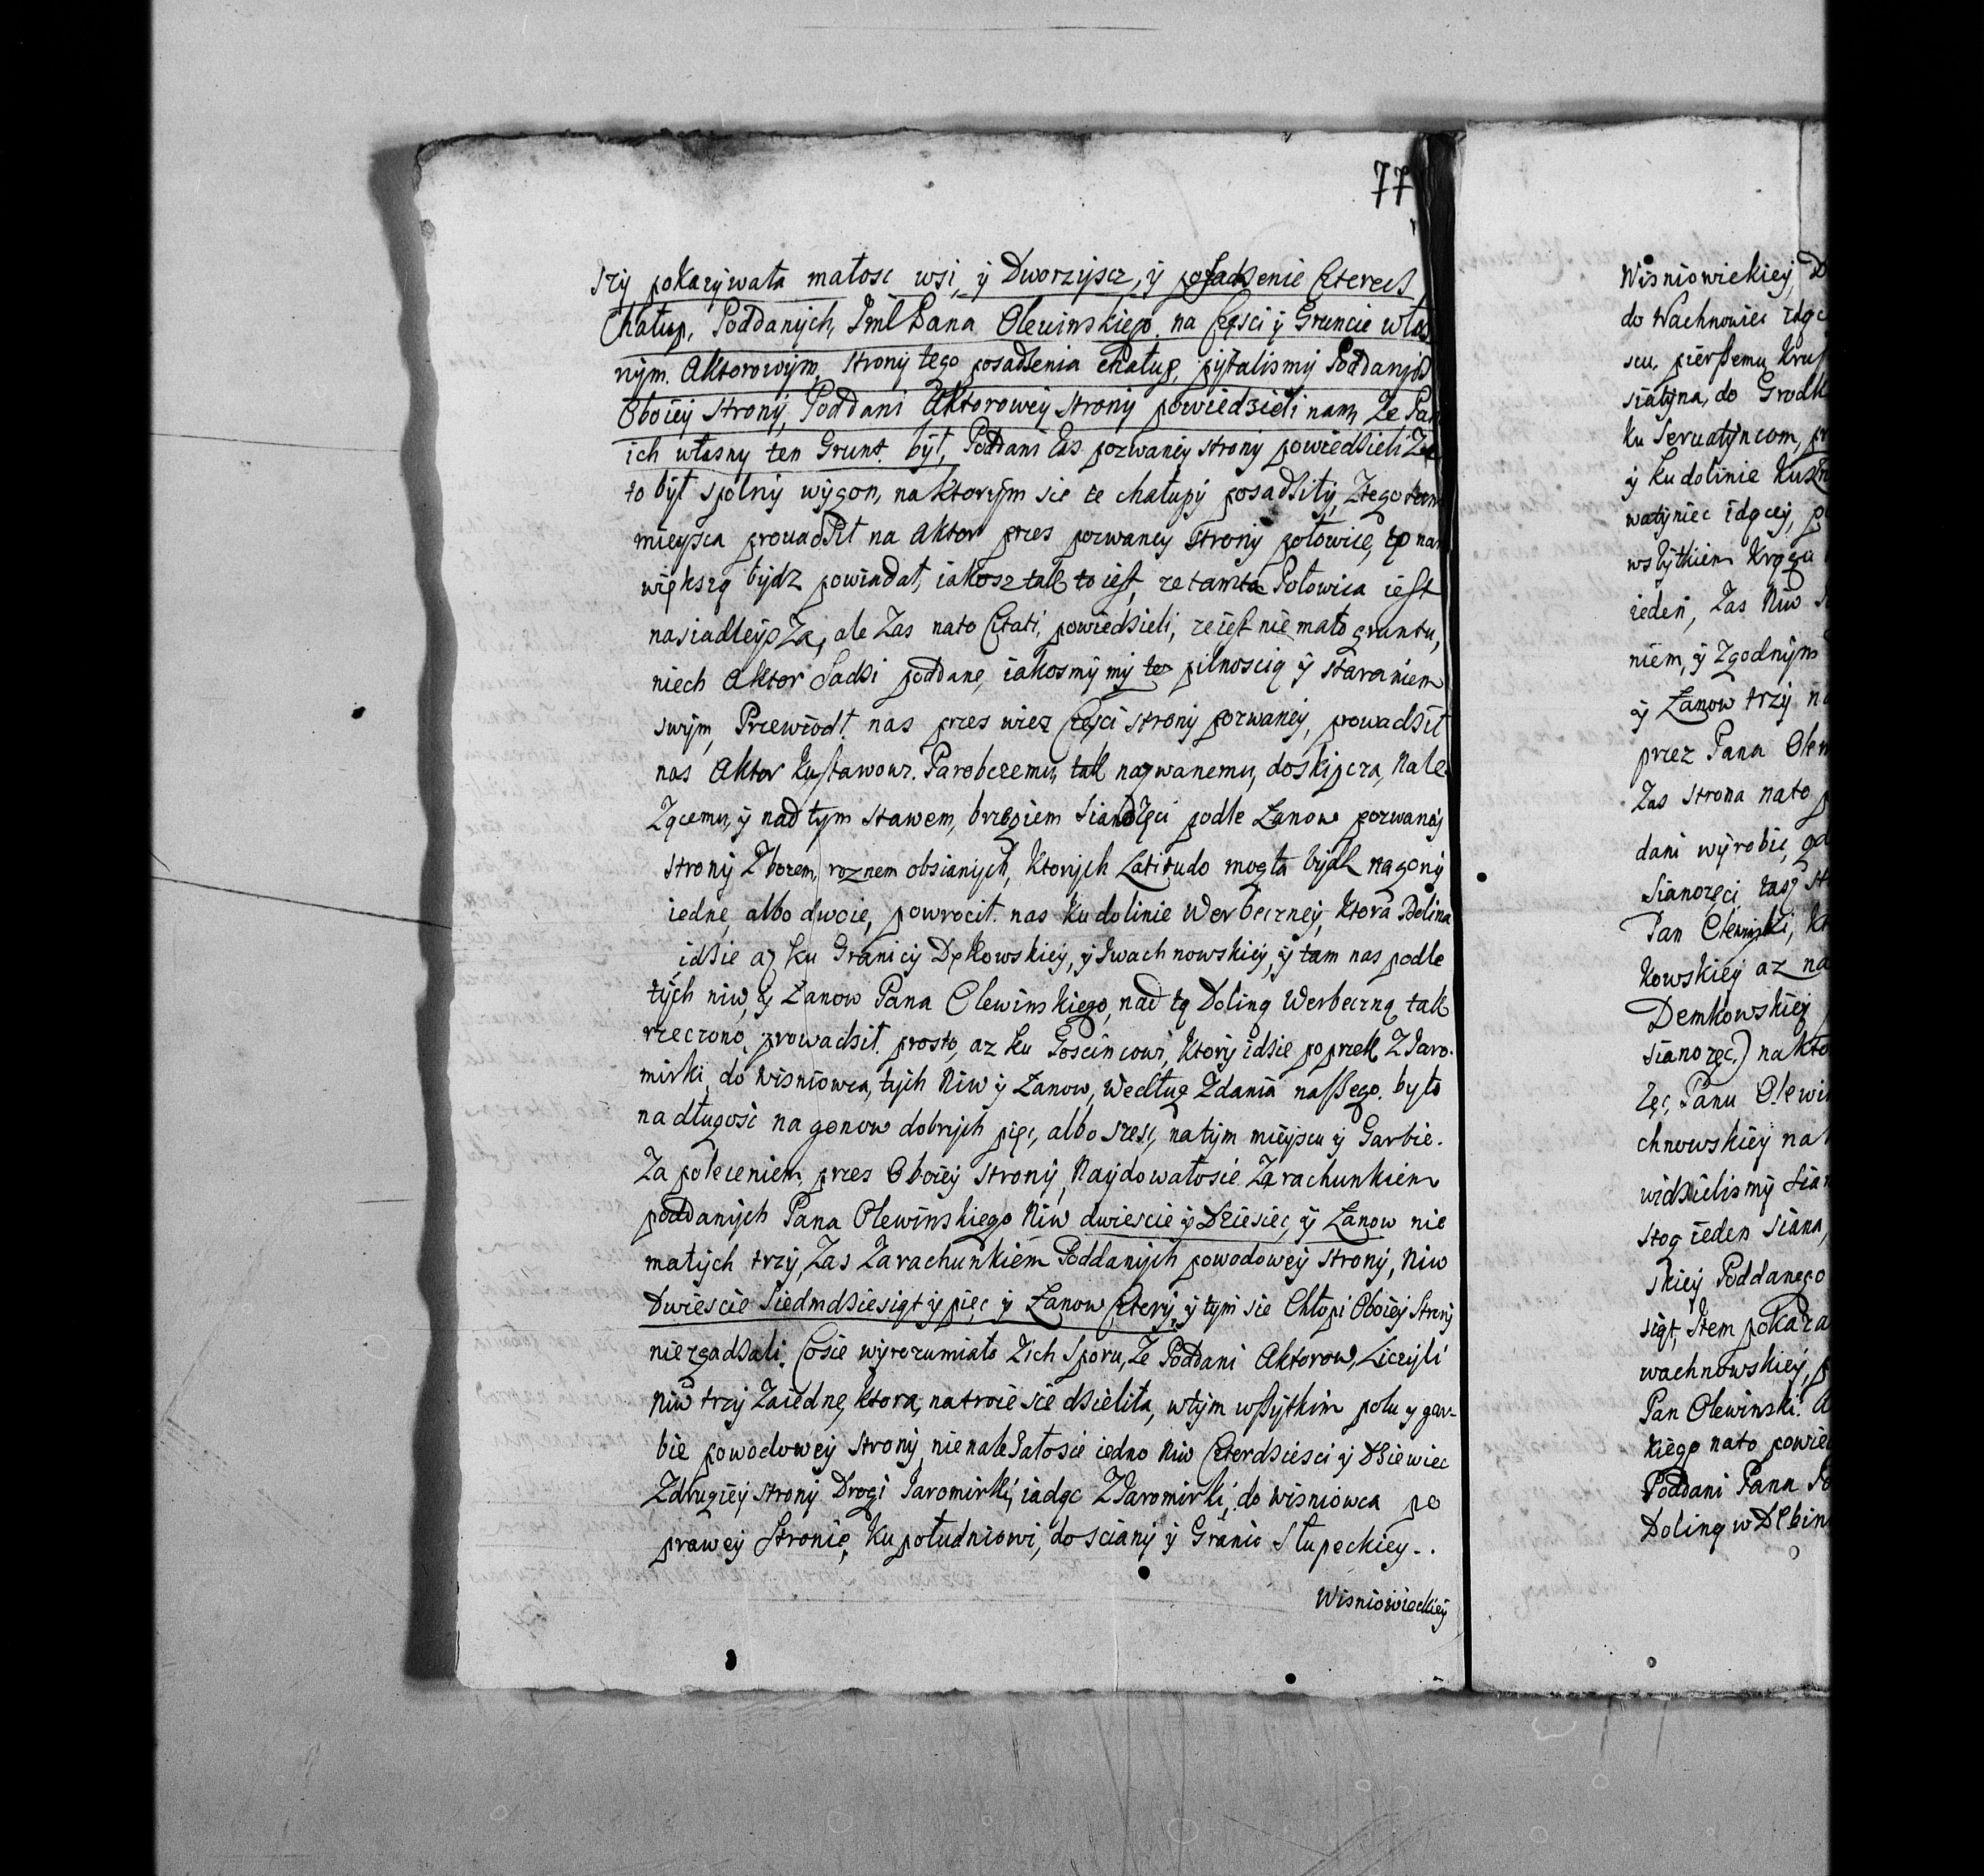 77
rzy pokazywała małosc wsi, y Dworzyscz, y posadzenie Czterech
Chałup, Poddanych, Imć Pana Olewinskiego, na Częsci y Gruncie włas
nym. Aktorowym, strony tego posadzenia chałup, pytalismy Poddanych
Oboiey Strony, Poddani Aktorowey strony powiedzieli nam, Ze Pan
ich własny ten Grunt. był, Poddani Zas pozwaney strony powiedzieli Ze
to był spolny wygon, na ktorym sie te chałupy posadziły, Ztego tam
mieysca prowadził na Aktor przes pozwaney strony połowice, tę nam
większą bydz powiadał, iakosz tak to iest, ze tamta Połowica iest
nasiadleysza, ale Zas nato Citati, powiedzieli, ze iest nie mało gruntu,
niech Aktor Sadzi poddane, iakosmy my te pilnoscią y staraniem
swym, Przewiodł nas przes wies Częsci strony pozwaney, prowadził
nas Aktor ku stawowi. Parobczemu, tak nazwanemu, doskipcza, Nale
Zącemu, y nad tym stawem, brzegiem Sianożęci podle Łanow pozwaney
strony Zbozem roznem obsianych, ktorych Latitudo mogła bydz nagony
iedne, albo dwoie, powrocił nas ku dolinie Werbeczney, ktora Dolina
idzie az ku Granicy Dękowskiey, y Iwachnowskiey, y tam nas podle
tych niw, y Łanow Pana Olewinskiego, nad tą Doliną Werbeczną tak
rzeczono, prowadził prosto, az ku Goscincowi, ktory idzie poprzek Z Jaro.
mirki, do Wisniowca, tych Niw y Łanow, według Zdania naszego. było
na długosc na gonow dobrych pięc, albo szesc, na tym mieyscu y Garbie.
Za poleceniem przes Oboiey strony, Naydowałosie Zarachunkiem
poddanych Pana Olewinskiego Niw dwiescie y Dziesiec, y Łanow nie
małych trzy, Zas Zarachunkiem Poddanych powodowey strony, Niw
Dwiescie Siedmdziesiąt y pięc y Łanow Cztery, y tym sie Chłopi Oboiey Strony
niezgadzali, Cosie wyrozumiało Zich Sporu, Ze Poddani Aktorow, Liczyli
Niw trzy Zaiedne, ktora, natroie sie dzieliła, wtym wszytkim polu y gar-
bie powodowey strony, nienalezałosie iedno Niw Czterdziesci y Dziewiec
Zdrugiey strony Drogi Jaromirki, iadąc Z Jaromirki, do Wisniowca po
prawey Stronie, ku południowi, do sciany y Granic Słupeckiey..
Wisniowieckiey
Wisniowiekiey, D
do Wachnowiec idąc
scu, pierszemu
siatyna, do Grodk
ku Seruatyncom, pr
y ku dolinie
watyniec idącey, p
wszytkiem Kręgu
ieden, Zas Niw
niem, y Zgodnym
y Łanow trzy na
przez Pana Olew
Zas strona nato p
dani wyrobic,
Sianozęci,
Pan Olewinski, kt
kowskiey az na
Demkowskiey
sianozęc,) na kto
Zęc, Panu Olewin
chnowskiey na
widzielismy Sian
stog ieden Siana,
skiey Poddanego
siąt, Item pokaza
wachnowskiey, p
Pan Olewinski. A
kiego nato powied
Poddani Pana
Doling w Dębin